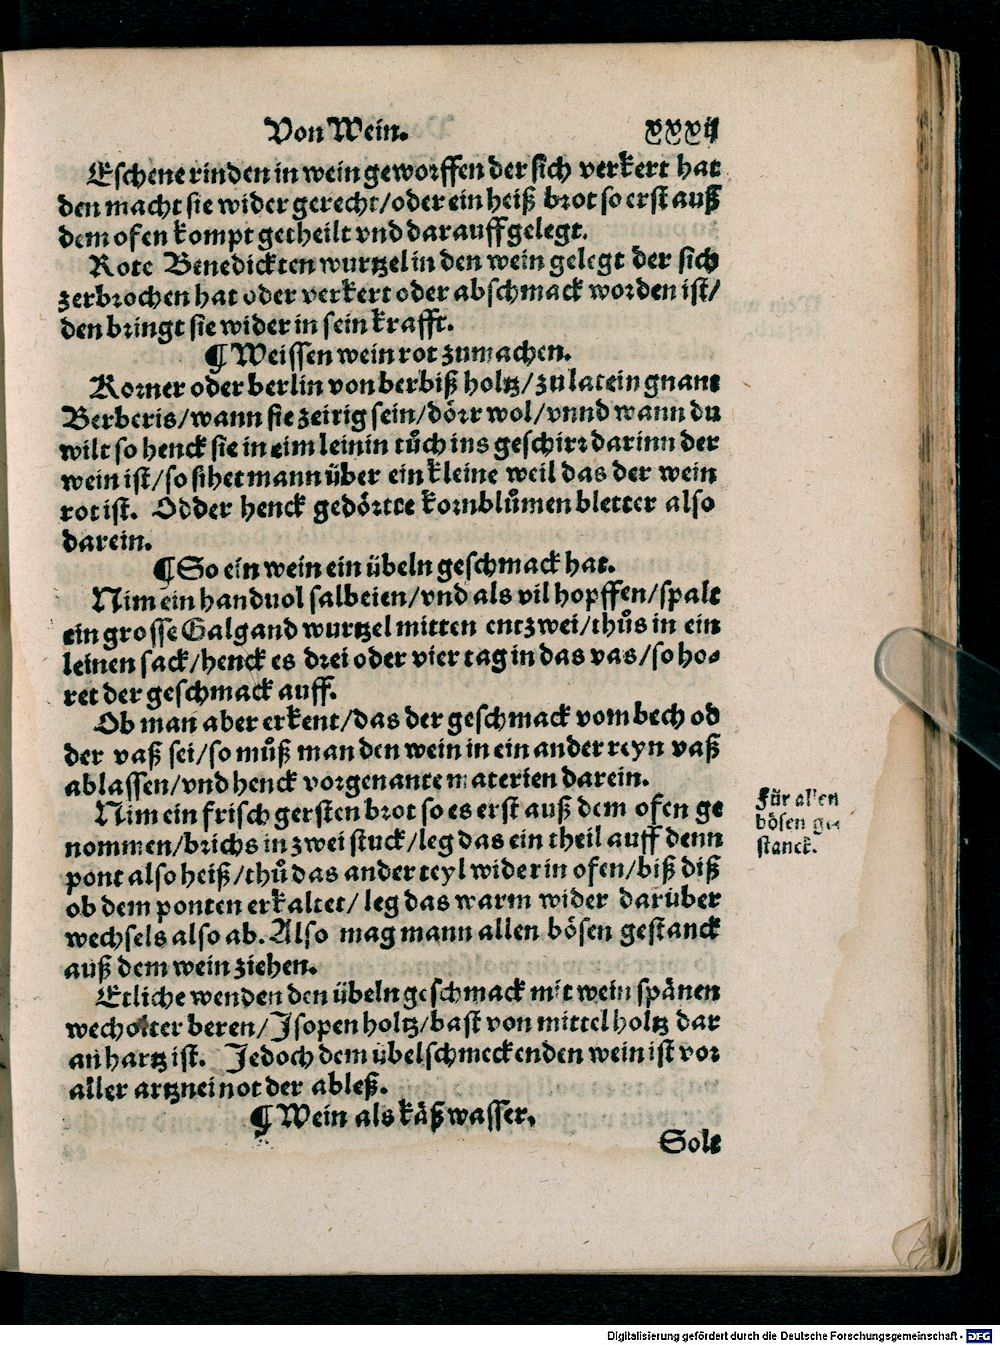 Von Wein. xxxij
Eschene rinden in wein geworffen der sich verkert hat
den macht sie wider gerecht/oder ein heiß brot so erst auß
dem ofen kompt getheilt vnd darauff gelegt.
Rote Benedickten wurtzel in den wein gelegt der sich
zerbrochen hat oder verkert oder abschmack worden ist/
den bringt sie wider in sein krafft.
¶ Weissen wein rot zumachen.
Korner oder berlin von berbiß holtz/zu latein gnant
Berberis/wann sie zeitig sein/dörr wol/vnnd wann du
wilt so henck sie in eim leinin tůch ins geschirr darinn der
wein ist/so sihet mann über ein kleine weil das der wein
rot ist. Odder henck gedörtte kornblůmen bletter also
darein.
¶ So ein wein ein übeln geschmack hat.
Nim ein handuol salbeien/vnd als vil hopffen/spalt
ein grosse Galgand wurtzel mitten entzwei/thůs in ein
leinen sack/henck es drei oder vier tag in das vas/so ho-
ret der geschmack auff.
Ob man aber erkent/das der geschmack vom bech od
der vaß sei/so můß man den wein in ein ander reyn vaß
ablassen/vnd henck vorgenante materien darein.
Nim ein frisch gersten brot so es erst auß dem ofen ge
nommen/brichs in zwei stuck/leg das ein theil auff denn
pont also heiß/thů das ander teyl wider in ofen/biß diß
ob dem ponten erkaltet/ leg das warm wider darüber
wechsels also ab. Also mag mann allen bösen gestanck
auß dem wein ziehen.
Für allen
bösen ge
stanck.
Etliche wenden den übeln geschmack mit wein spänen
wecholter beren/Isopen holtz/bast von mittel holtz dar
an hartz ist. Jedoch dem übelschmeckenden wein ist vor
aller artznei not der ableß.
¶ Wein als käßwasser.
Solt
Digitalisierung gefördert durch die Deutsche Forschungsgemeinschaft - DFG